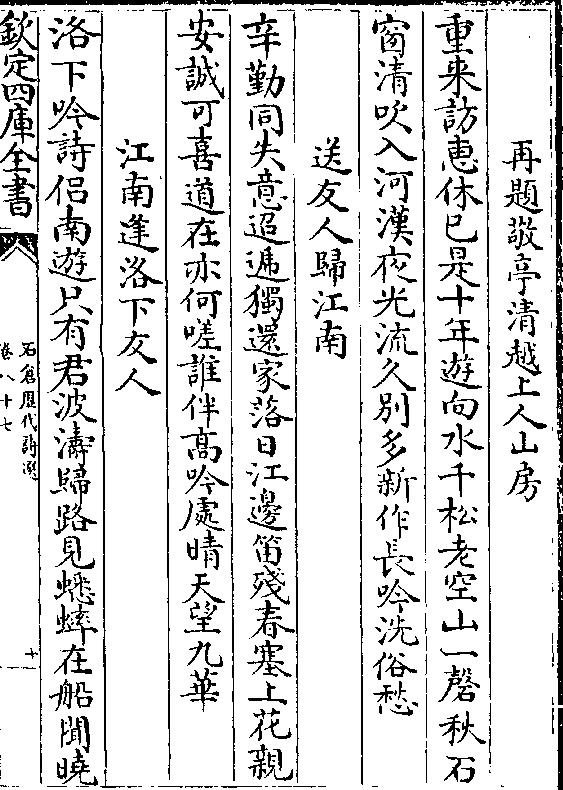 再題敬亭清越上人山房
重來訪惠休已是十年遊向水千松老空山一磬秋石
窗清吹入河漢夜光流久别多新作長吟洗俗愁
送友人歸江南
辛勤同失意迢遞獨還家落日江邊笛殘春塞上花親
安誠可喜道在亦何嗟誰伴高吟處晴天望九華
江南逢洛下友人
洛下吟詩侣南遊只有君波濤歸路見蟋蟀在船聞曉
欽定四庫全書
石倉歷代詩選
卷八十七
十